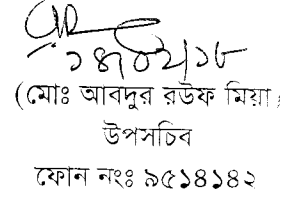 (মোঃ আবদুর রউফ মিয়া)
উপসচিব
ফোন নংঃ ৯৫১৪১৪২